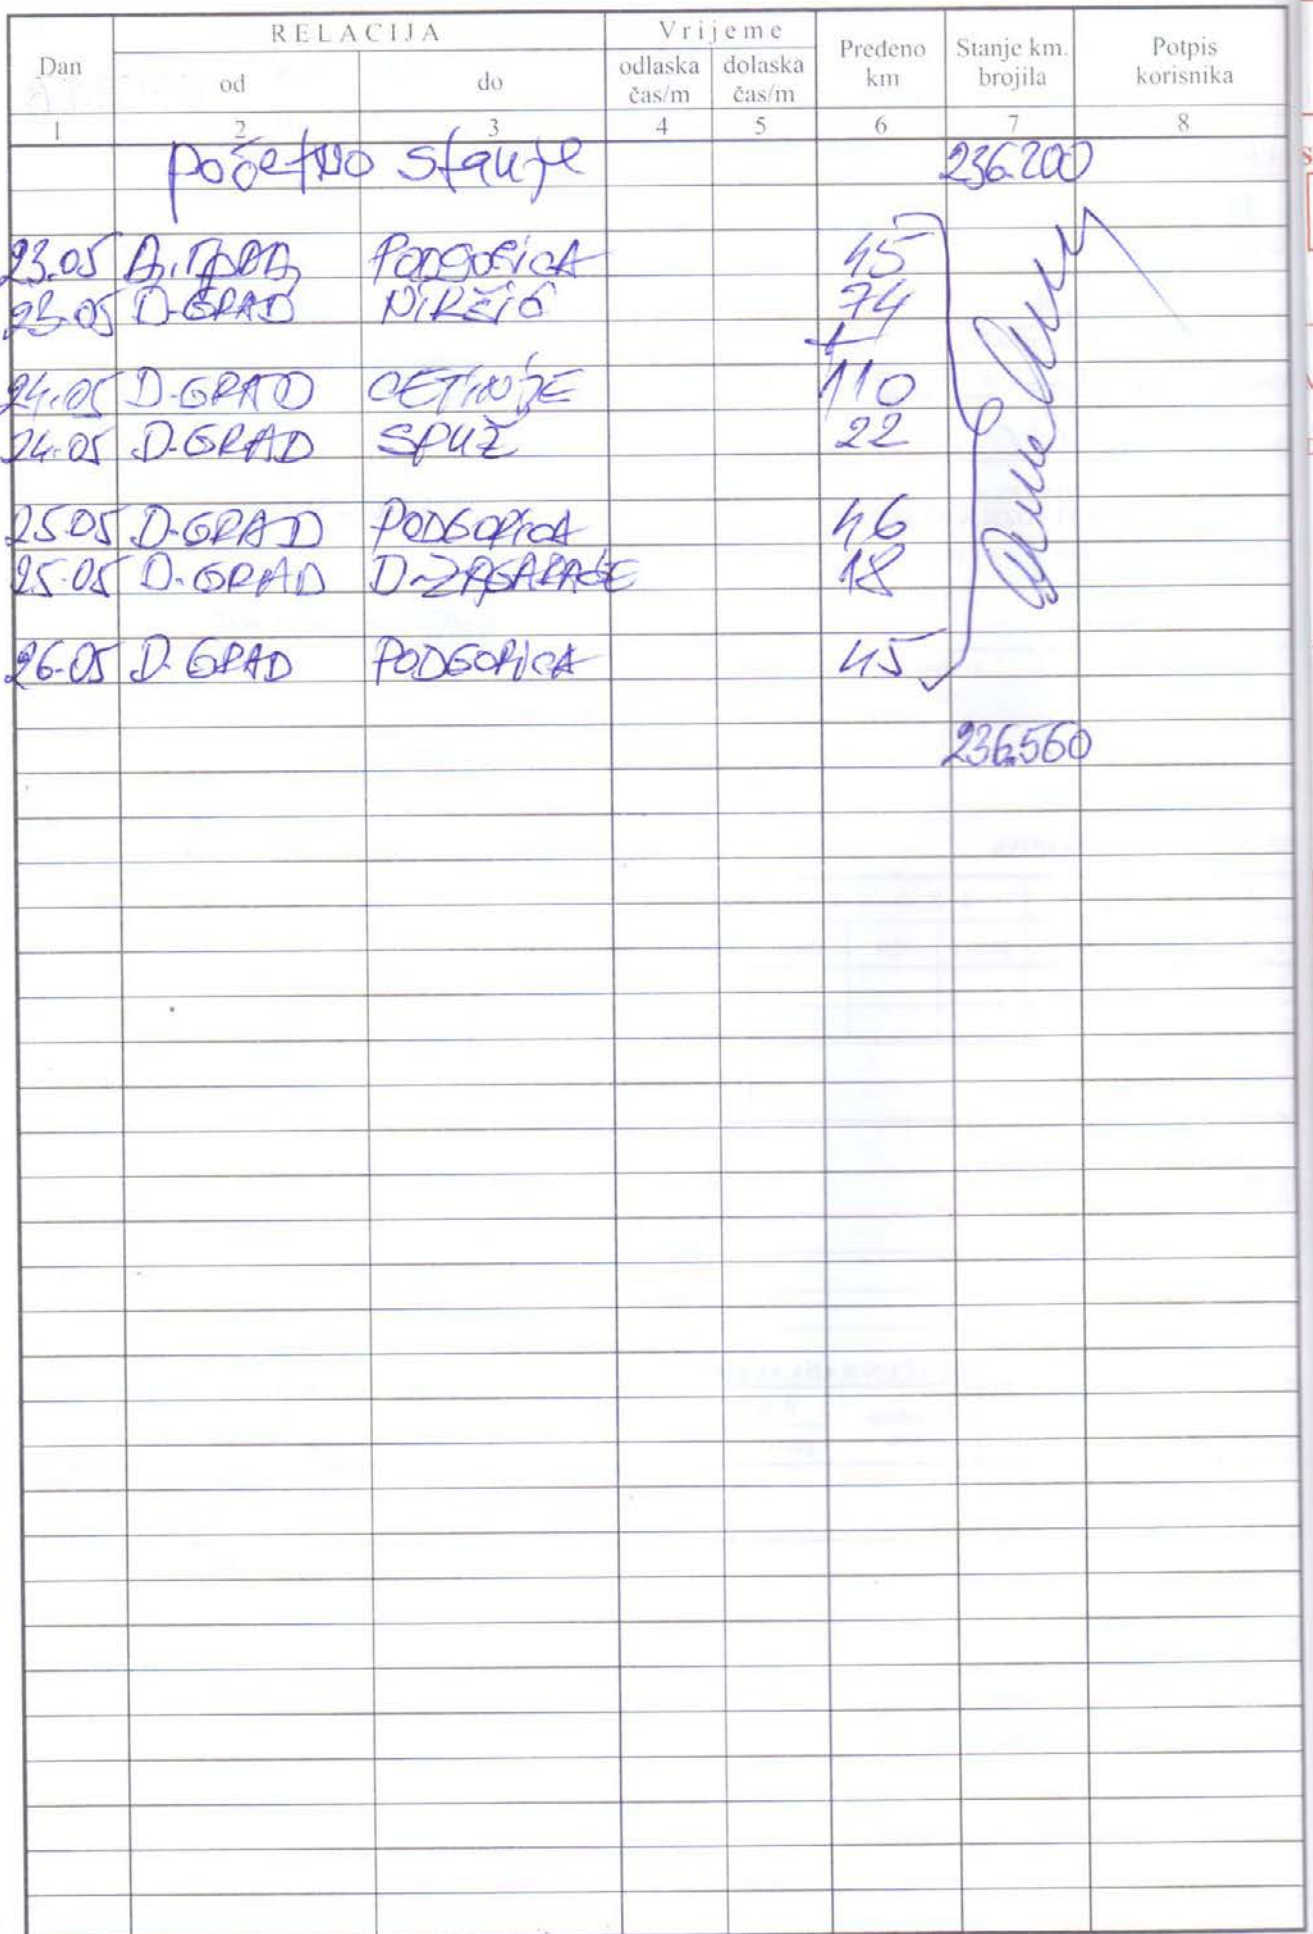 RELACIJA Vrijeme
Dan od do odlaska čas/m dolaska čas/m Pređeno km Stanje km. brojila Potpis korisnika
1 2 3 4 5 6 7 8
početno stanje 236.200
23.05 PODGORICA 45
23.05 D-GRAD NIKŠIĆ 74
24.05 D-GRAD CETINJE 110
24.05 D-GRAD SPUŽ 22
25.05 D-GRAD PODGORICA 46
25.05 D-GRAD D-ZAGARAČE 18
26.05 D-GRAD PODGORICA 45
236.560